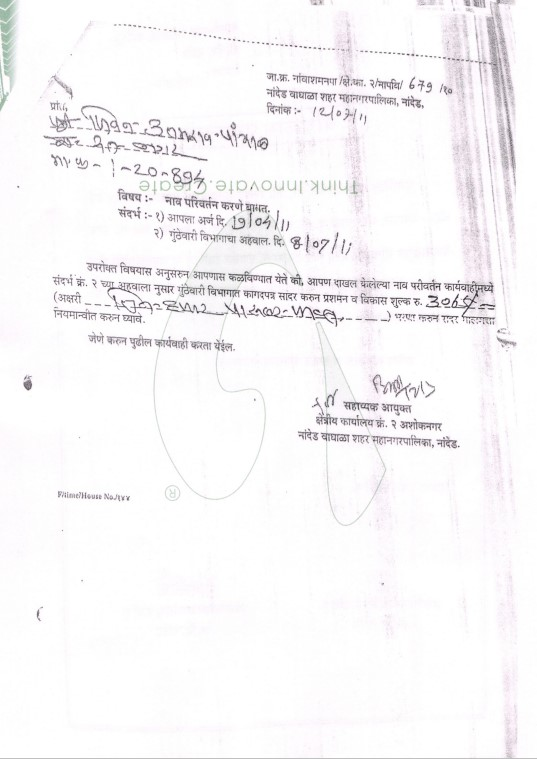 जा.क्र. नांवाशमनपा /क्षे.का. २/नापवि/ 679 /१०
नांदेड वाघाळा शहर महानगरपालिका, नांदेड,
दिनांक :- 12/07/11
प्रति,
मा.क्र - 1-20-894
Think.Innovate.Create.
विषय :- नाव परिवर्तन करणे बाबत.
संदर्भ :- १) आपला अर्ज दि. 19/04/11
२) गुंठेवारी विभागाचा अहवाल. दि. 8/07/11
उपरोक्त विषयास अनुसरुन आपणास कळविण्यात येते की, आपण दाखल केलेल्या नाव परीवर्तन कार्यवाहीमध्ये
संदर्भ क्रं. २ च्या अहवाला नुसार गुंठेवारी विभागात कागदपत्र सादर करुन प्रशमन व विकास शुल्क रु. 3065/=
(अक्षरी ) भरणा करुन सदर
नियमान्वीत करुन घ्यावे.
जेणे करुन पुढील कार्यवाही करता येईल.
सहाय्यक आयुक्त
क्षेत्रीय कार्यालय क्रं. २ अशोकनगर
नांदेड वाघाळा शहर महानगरपालिका, नांदेड.
F/ilime/House No./१४४
®